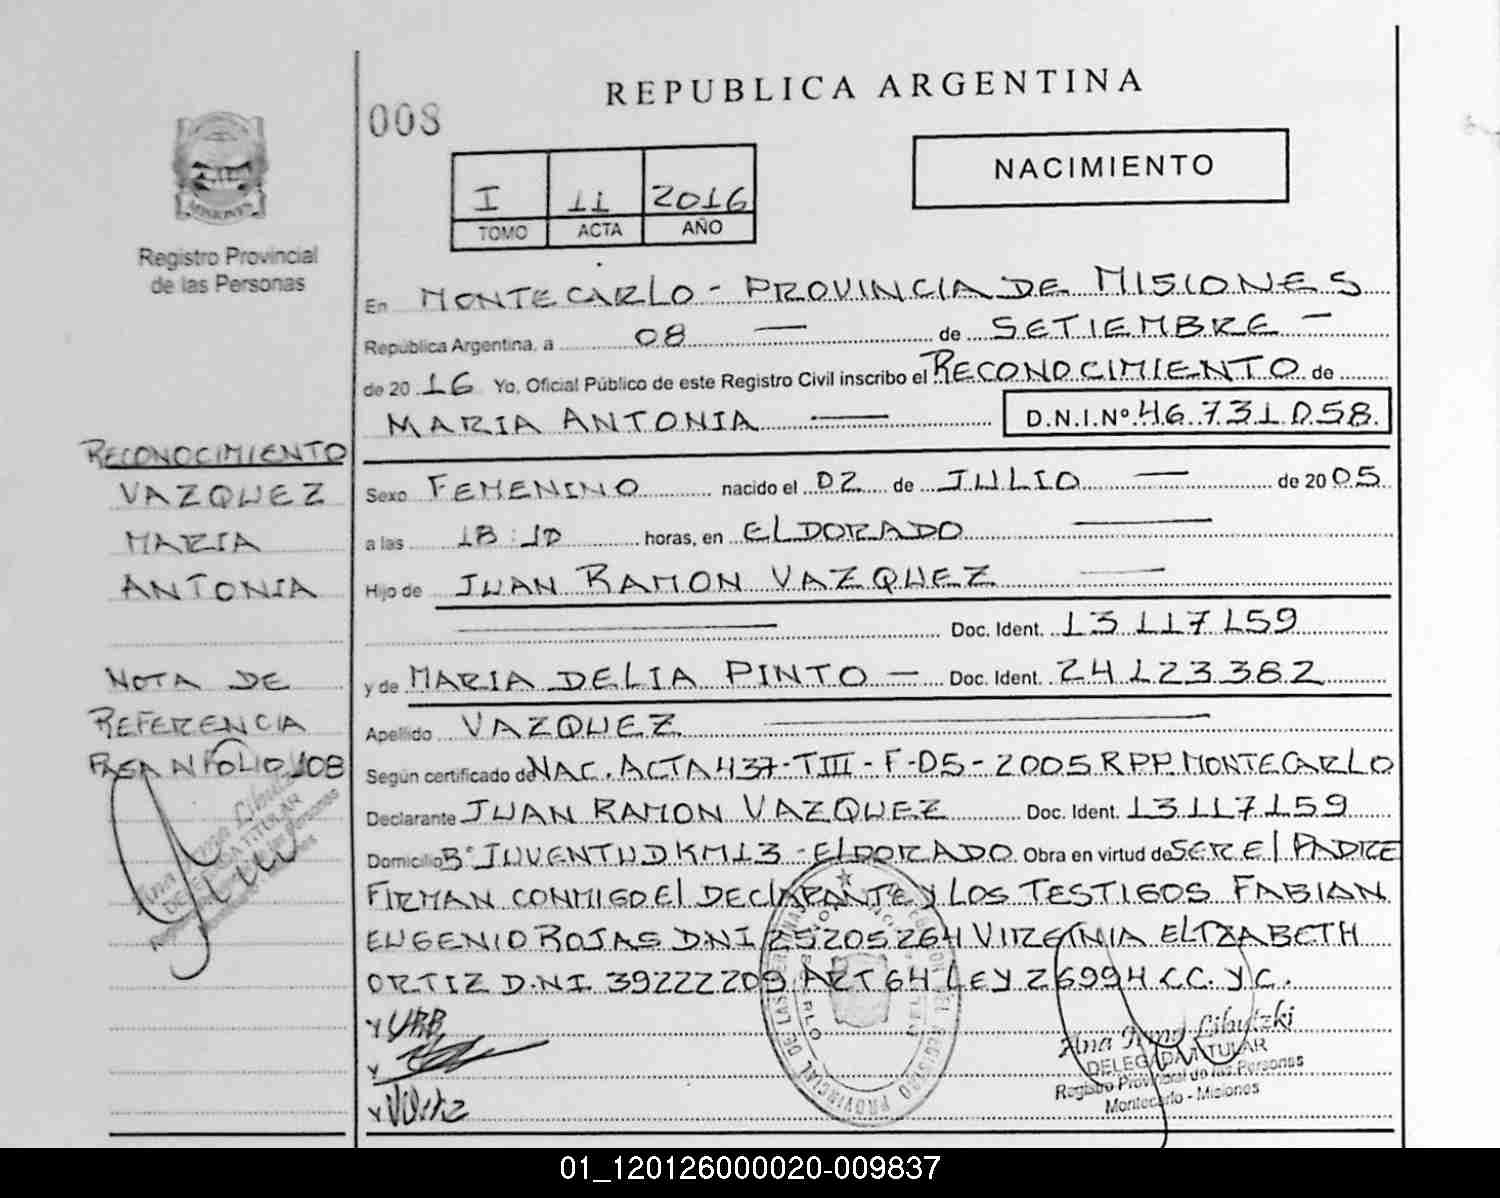 REPUBLICA ARGENTINA
008
NACIMIENTO
I 11 2016
TOMO ACTA AÑO
MISIONES
Registro Provincial
de las Personas
En MONTECARLO - PROVINCIA DE MISIONES
República Argentina, a 08 — de SETIEMBRE —
de 2016 Yo, Oficial Público de este Registro Civil inscribo el RECONOCIMIENTO de
MARIA ANTONIA — D.N.I.Nº 46.731.058.
Sexo FEMENINO nacido el 02 de JULIO — de 2005
a las 18:10 horas, en ELDORADO —
Hijo de JUAN RAMON VAZQUEZ —
— Doc. Ident. 13 117 159
y de MARIA DELIA PINTO — Doc. Ident. 24 123.382
Apellido VAZQUEZ —
Según certificado de NAC. ACTA 437-TIII-F-05-2005 RPP. MONTECARLO
Declarante JUAN RAMON VAZQUEZ Doc. Ident. 13 117 159
Domicilio Bº JUVENTUD KM13 - ELDORADO. Obra en virtud de SER El PADRE
FIRMAN CONMIGO El DEClARANTE y LOS TESTIGOS FABIAN
EUGENIO ROJAS D.N.I 25205264 VIRGINIA ELIZABETH
ORTIZ D.N.I. 39222209 ART 64 LEY 26994 CC. y C.
RECONOCIMIENTO
VAZQUEZ
MARIA
ANTONIA
NOTA DE
REFERENCIA
FOLIO 108
DELEGADA TITULAR
Registro Provincial de las Personas
Montecarlo - Misiones
01_120126000020-009837